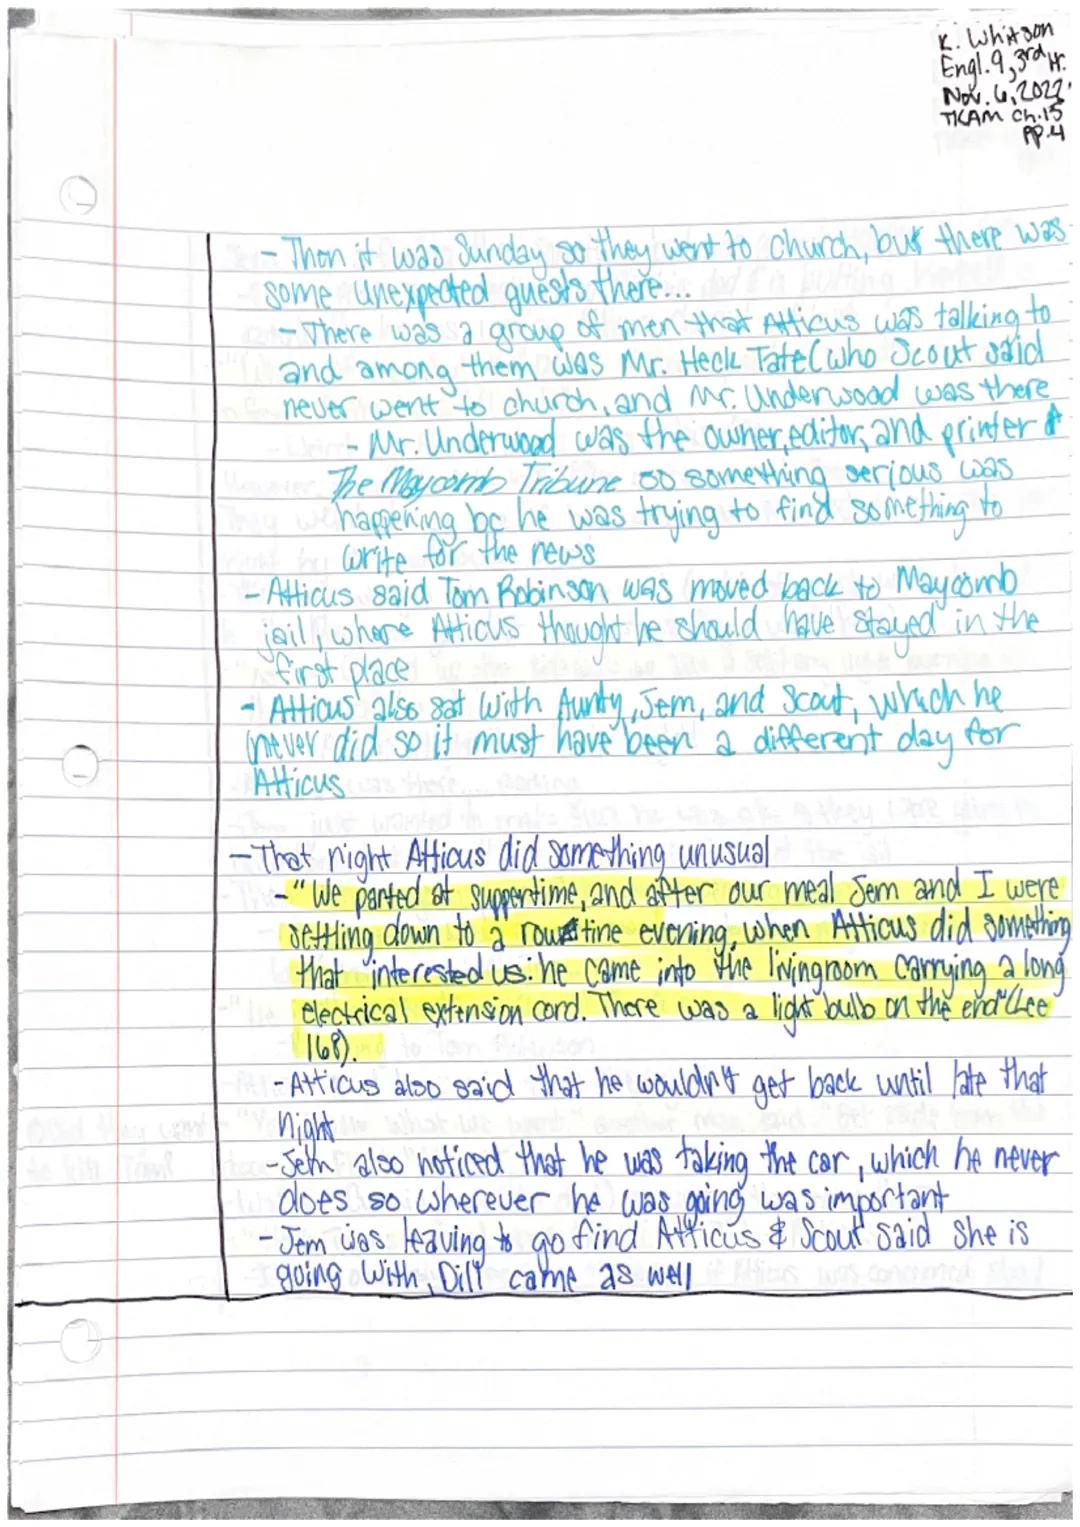 K. Whitson
Engl. 9, 3rd Hr.
Nov. 6, 2022
TKAM Ch. 15
PP. 4
- Then it was Sunday so they went to church, but there was
some unexpected guests there...
- There was a group of men that Atticus was talking to
and among them was Mr. Heck Tate (who Scout said
never went to church, and Mr. Underwood was there
- Mr. Underwood was the owner, editor, and printer of
The Maycomb Tribune so something serious was
happening bc he was trying to find something to
write for the news
- Atticus said Tom Robinson was moved back to Maycomb
jail, where Atticus thought he should have stayed in the
first place
- Atticus also sat with Aunty, Jem, and Scout, which he
never did so it must have been a different day for
Atticus
- That night Atticus did something unusual
- "We parted at suppertime, and after our meal Jem and I were
settling down to a routine evening, when Atticus did something
that interested us: he came into the livingroom carrying a long
electrical extension cord. There was a light bulb on the end" (Lee
168).
- Atticus also said that he wouldn't get back until late that
night
- Jem also noticed that he was taking the car, which he never
does so wherever he was going was important
- Jem was leaving to go find Atticus & Scout said she is
going with, Dill came as well